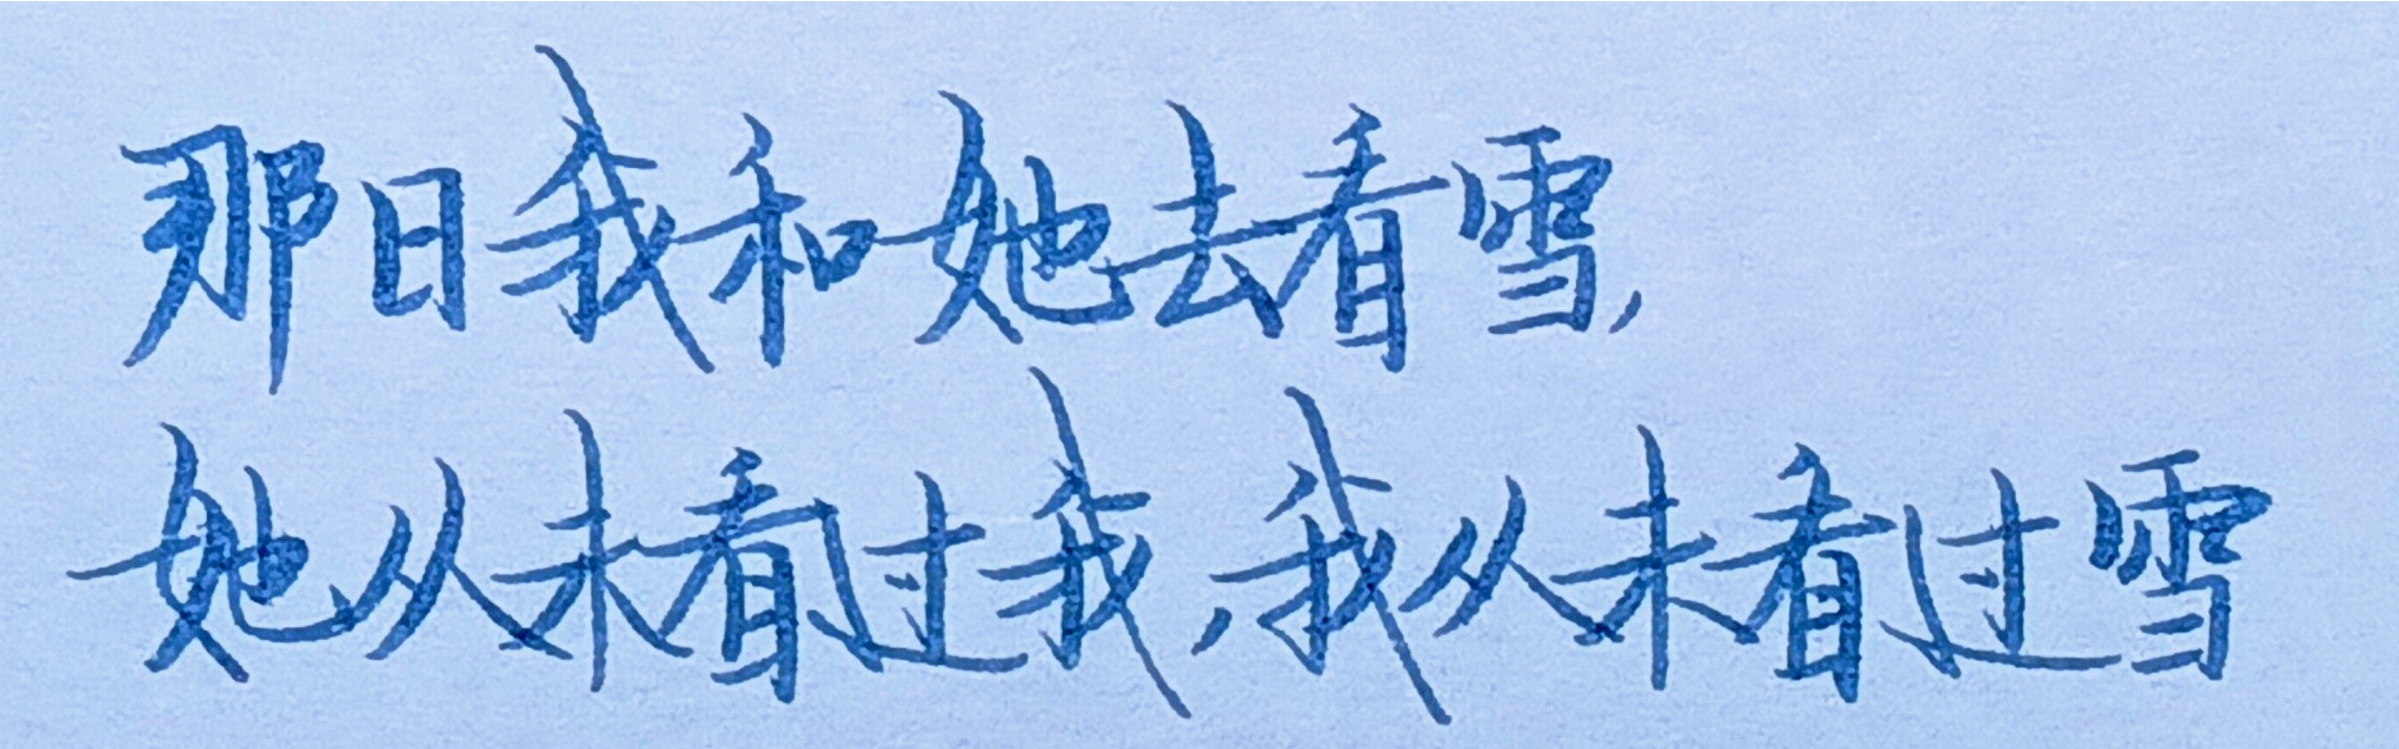 那日我和她去看雪,
她从未看过我,我从未看过雪